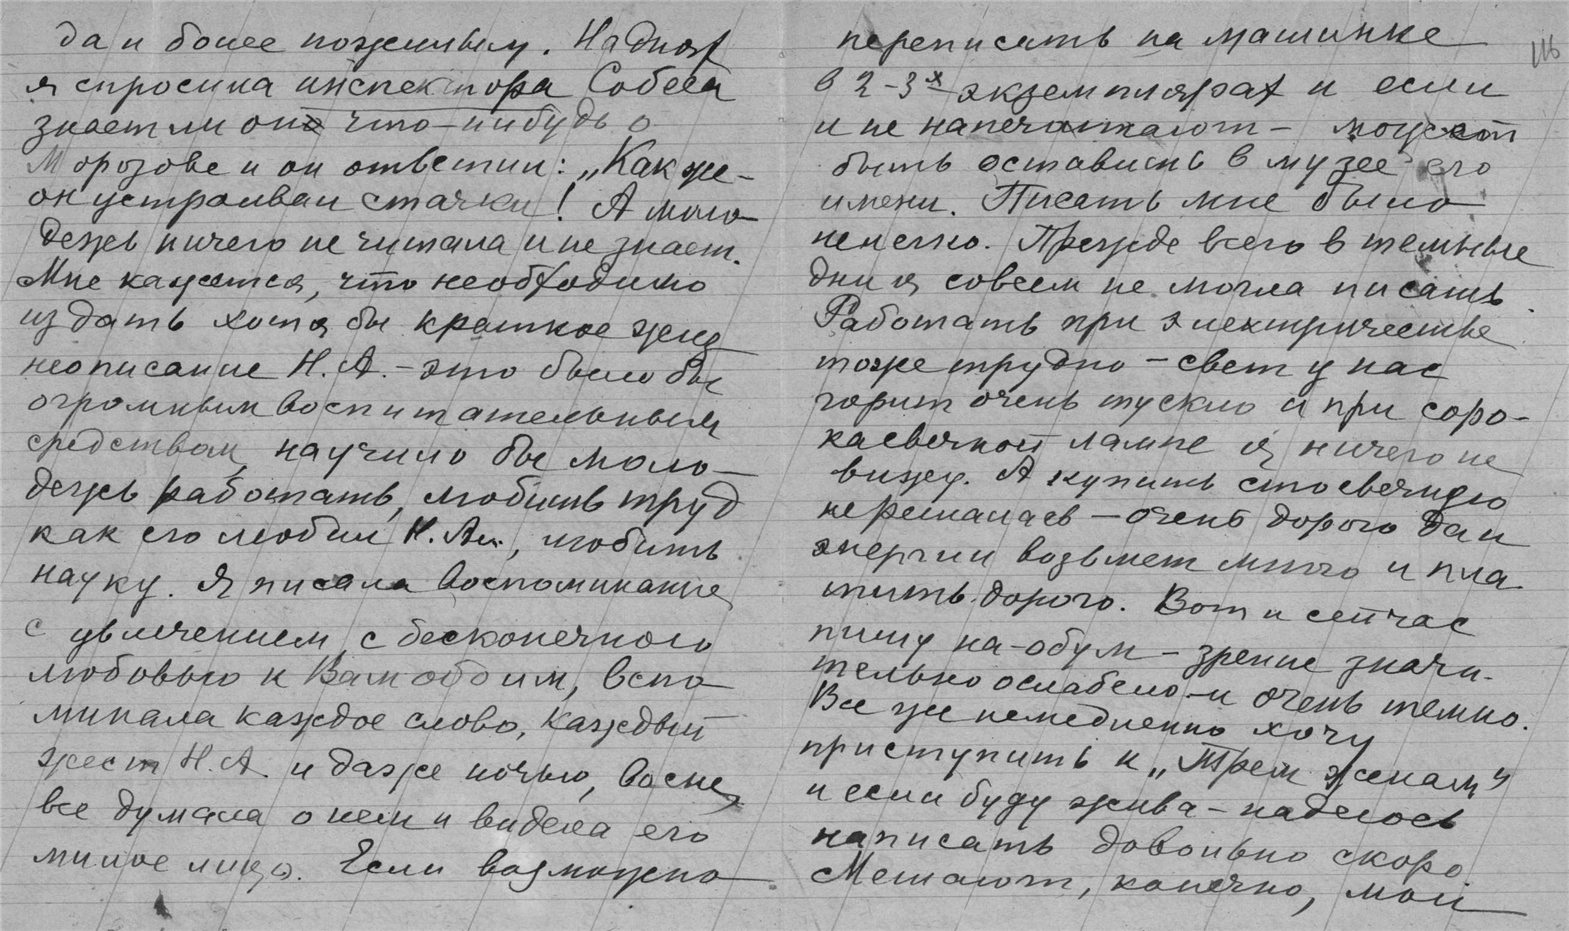 да и более пожилым. На днях
я спросила инспектора Собеса
знает ли он что-нибудь о
Морозове и он ответил: „Как же-
он устраивал стачки! А моло-
дежь ничего не читала и не знает.
Мне кажется, что необходимо
издать хотя бы краткое жиз-
неописание Н.А. - это было бы
огромным воспитательным
средством, научило бы моло-
дежь работать, любить труд
как его любил Н. Ал., любить
науку. Я писала воспоминания
с увлечением, с бесконечного
любовью к Вам обоим, вспо-
минала каждое слово, каждый
жест Н.А. и даже ночью, во сне,
все думала о нем и видела его
милое лицо. Если возможно
116
переписать на машинке
в 2-3х экземплярах и если
и не напечатают - может
быть оставить в музее его
имени. Писать мне было
нелегко. Прежде всего в темные
дни я совсем не могла писать.
Работать при электричестве
тоже трудно - свет у нас
горит очень тускло и при соро-
касвечной лампе я ничего не
вижу. А купить стосвечную
не решалась - очень дорого да и
энергии возьмет много и пла-
тить дорого. Вот и сейчас
пишу на-обум - зрение значи-
тельно ослабело - и очень темно.
Все же немедленно хочу
приступить к „Трем женам"
и если буду жива - надеюсь
написать довольно скоро
Мешают, конечно, мои